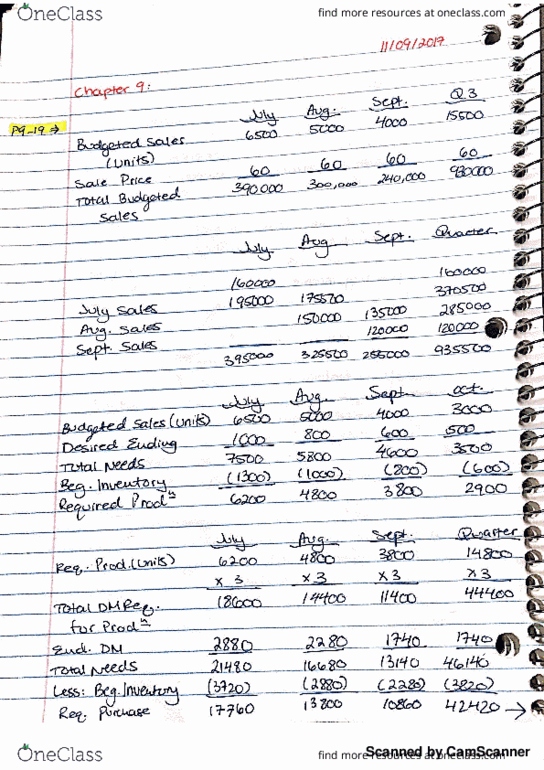 OneClass
find more resources at oneclass.com
11/09/2017
Chapter 9:
July Aug. Sept. Q.3
P9-19 → Budgeted Sales 6500 5000 4000 15500
(units)
Sale Price 60 60 60 60
Total Budgeted 390,000 300,000 240,000 930000
Sales
July Aug Sept. Quarter
160000 160000
July Sales 195000 175500 370500
Aug. Sales 150000 135000 285000
Sept. Sales 120000 120000
395000 325500 255000 935500
July Aug. Sept. Oct.
Budgeted Sales (units) 6500 5000 4000 3000
Desired Ending 1000 800 600 500
Total Needs 7500 5800 4600 3500
Beg. Inventory (1300) (1000) (800) (600)
Required Prodⁿ 6200 4800 3800 2900
July Aug. Sept. Quarter
Req. Prod. (units) 6200 4800 3800 14800
x 3 x 3 x 3 x 3
Total DM Req. 18600 14400 11400 44400
for Prodⁿ
End. DM 2880 2280 1740 1740
Total Needs 21480 16680 13140 46140
Less: Beg. Inventory (3720) (2880) (2280) (3820)
Req. Purchase 17760 13800 10860 42420 →
Scanned by CamScanner
OneClass
find more resources at oneclass.com